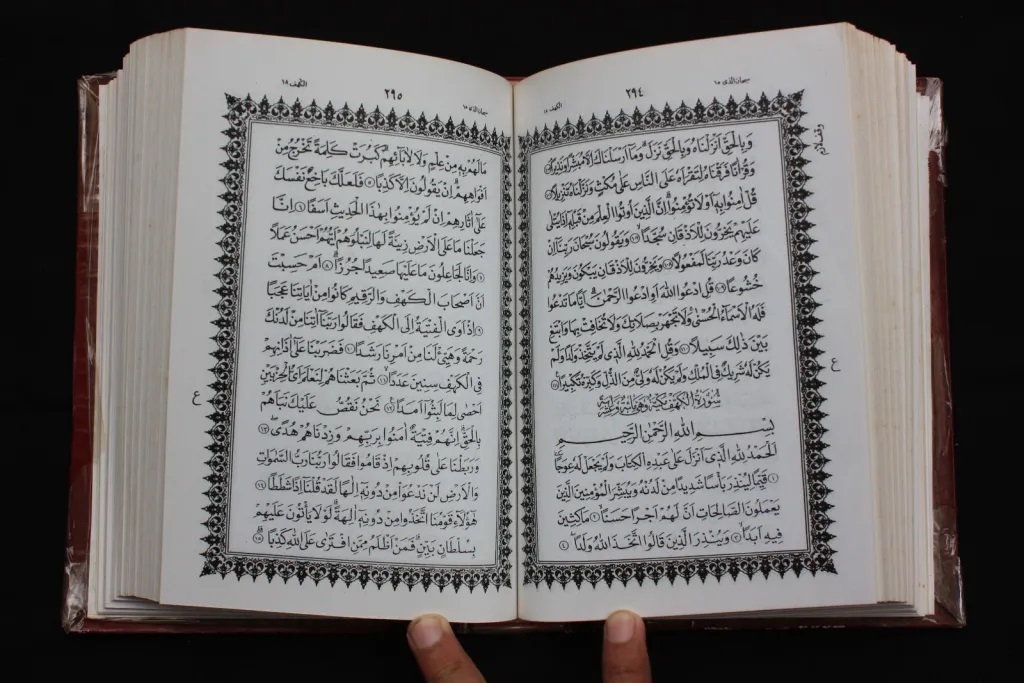 سبحان الذى ١٥
٢٩٤
الكهف ١٨
وَبِالْحَقِّ اَنْزَلْنَاهُ وَبِالْحَقِّ نَزَلَ وَمَا اَرْسَلْنَاكَ اِلَّا مُبَشِّرًا وَنَذِيرًا
وَقُرْاٰنًا فَرَقْنَاهُ لِتَقْرَاَهُ عَلَى النَّاسِ عَلٰى مُكْثٍ وَنَزَّلْنَاهُ تَنْزِيلًا
قُلْ اٰمِنُوا بِهِ اَوْ لَا تُؤْمِنُوا اِنَّ الَّذِينَ اُوتُوا الْعِلْمَ مِنْ قَبْلِهِ اِذَا يُتْلٰى
عَلَيْهِمْ يَخِرُّونَ لِلْاَذْقَانِ سُجَّدًا وَيَقُولُونَ سُبْحَانَ رَبِّنَا اِنْ
كَانَ وَعْدُ رَبِّنَا لَمَفْعُولًا وَيَخِرُّونَ لِلْاَذْقَانِ يَبْكُونَ وَيَزِيدُهُمْ
خُشُوعًا ١٠٩ قُلِ ادْعُوا اللّٰهَ اَوِ ادْعُوا الرَّحْمٰنَ اَيًّا مَا تَدْعُوا
فَلَهُ الْاَسْمَاءُ الْحُسْنٰى وَلَا تَجْهَرْ بِصَلَاتِكَ وَلَا تُخَافِتْ بِهَا وَابْتَغِ
بَيْنَ ذٰلِكَ سَبِيلًا ١١٠ وَقُلِ الْحَمْدُ لِلّٰهِ الَّذِى لَمْ يَتَّخِذْ وَلَدًا وَلَمْ
يَكُنْ لَهُ شَرِيكٌ فِى الْمُلْكِ وَلَمْ يَكُنْ لَهُ وَلِىٌّ مِنَ الذُّلِّ وَكَبِّرْهُ تَكْبِيرًا
سُورَةُ الْكَهْفِ مَكِّيَّةٌ وَهِىَ مِائَةٌ
بِسْمِ اللّٰهِ الرَّحْمٰنِ الرَّحِيمِ
اَلْحَمْدُ لِلّٰهِ الَّذِى اَنْزَلَ عَلٰى عَبْدِهِ الْكِتَابَ وَلَمْ يَجْعَلْ لَهُ عِوَجًا
١ قَيِّمًا لِيُنْذِرَ بَاْسًا شَدِيدًا مِنْ لَدُنْهُ وَيُبَشِّرَ الْمُؤْمِنِينَ الَّذِينَ
يَعْمَلُونَ الصَّالِحَاتِ اَنَّ لَهُمْ اَجْرًا حَسَنًا ٢ مَاكِثِينَ
فِيهِ اَبَدًا ٣ وَيُنْذِرَ الَّذِينَ قَالُوا اتَّخَذَ اللّٰهُ وَلَدًا ٤
ع
سبحان الذى ١٥
٢٩٥
الكهف ١٨
مَا لَهُمْ بِهِ مِنْ عِلْمٍ وَلَا لِاٰبَائِهِمْ كَبُرَتْ كَلِمَةً تَخْرُجُ مِنْ
اَفْوَاهِهِمْ اِنْ يَقُولُونَ اِلَّا كَذِبًا ٥ فَلَعَلَّكَ بَاخِعٌ نَفْسَكَ
عَلٰى اٰثَارِهِمْ اِنْ لَمْ يُؤْمِنُوا بِهٰذَا الْحَدِيثِ اَسَفًا ٦ اِنَّا
جَعَلْنَا مَا عَلَى الْاَرْضِ زِينَةً لَهَا لِنَبْلُوَهُمْ اَيُّهُمْ اَحْسَنُ عَمَلًا
٧ وَاِنَّا لَجَاعِلُونَ مَا عَلَيْهَا صَعِيدًا جُرُزًا ٨ اَمْ حَسِبْتَ
اَنَّ اَصْحَابَ الْكَهْفِ وَالرَّقِيمِ كَانُوا مِنْ اٰيَاتِنَا عَجَبًا
٩ اِذْ اَوَى الْفِتْيَةُ اِلَى الْكَهْفِ فَقَالُوا رَبَّنَا اٰتِنَا مِنْ لَدُنْكَ
رَحْمَةً وَهَيِّئْ لَنَا مِنْ اَمْرِنَا رَشَدًا ١٠ فَضَرَبْنَا عَلٰى اٰذَانِهِمْ
فِى الْكَهْفِ سِنِينَ عَدَدًا ١١ ثُمَّ بَعَثْنَاهُمْ لِنَعْلَمَ اَىُّ الْحِزْبَيْنِ
اَحْصٰى لِمَا لَبِثُوا اَمَدًا ١٢ نَحْنُ نَقُصُّ عَلَيْكَ نَبَاَهُمْ
بِالْحَقِّ اِنَّهُمْ فِتْيَةٌ اٰمَنُوا بِرَبِّهِمْ وَزِدْنَاهُمْ هُدًى ١٣
وَرَبَطْنَا عَلٰى قُلُوبِهِمْ اِذْ قَامُوا فَقَالُوا رَبُّنَا رَبُّ السَّمٰوَاتِ
وَالْاَرْضِ لَنْ نَدْعُوَا مِنْ دُونِهِ اِلٰهًا لَقَدْ قُلْنَا اِذًا شَطَطًا ١٤
هٰؤُلَاءِ قَوْمُنَا اتَّخَذُوا مِنْ دُونِهِ اٰلِهَةً لَوْلَا يَاْتُونَ عَلَيْهِمْ
بِسُلْطَانٍ بَيِّنٍ فَمَنْ اَظْلَمُ مِمَّنِ افْتَرٰى عَلَى اللّٰهِ كَذِبًا ١٥
ع